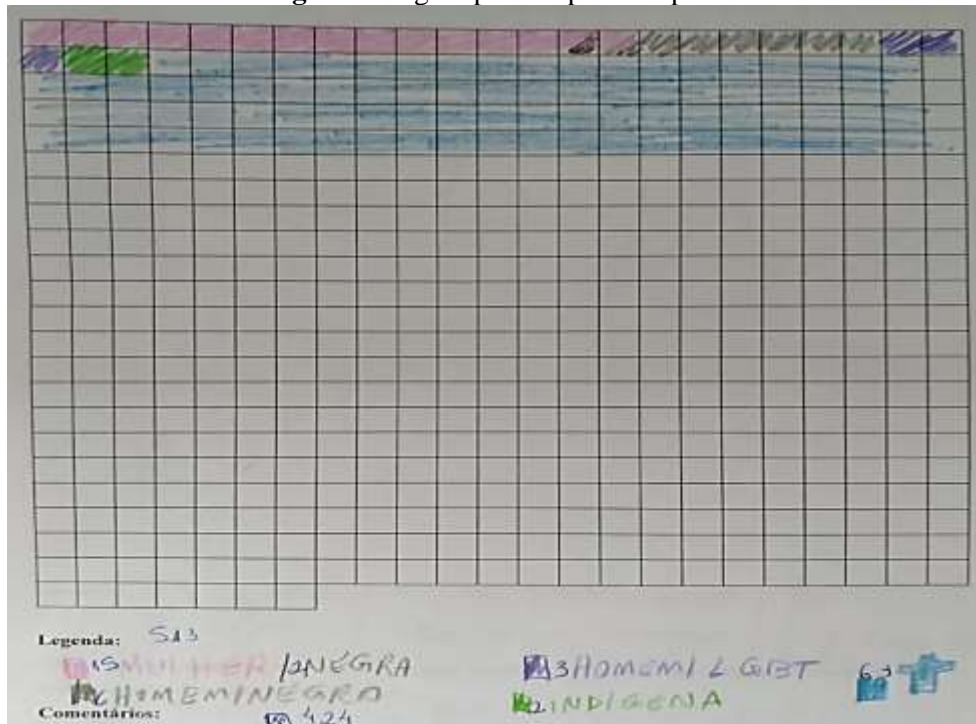 Legenda: 513
15 MULHER / 2 NEGRA
6 HOMEM/NEGRO
3 HOMEM/LGBT
2 INDIGENA
63
Comentários: 424